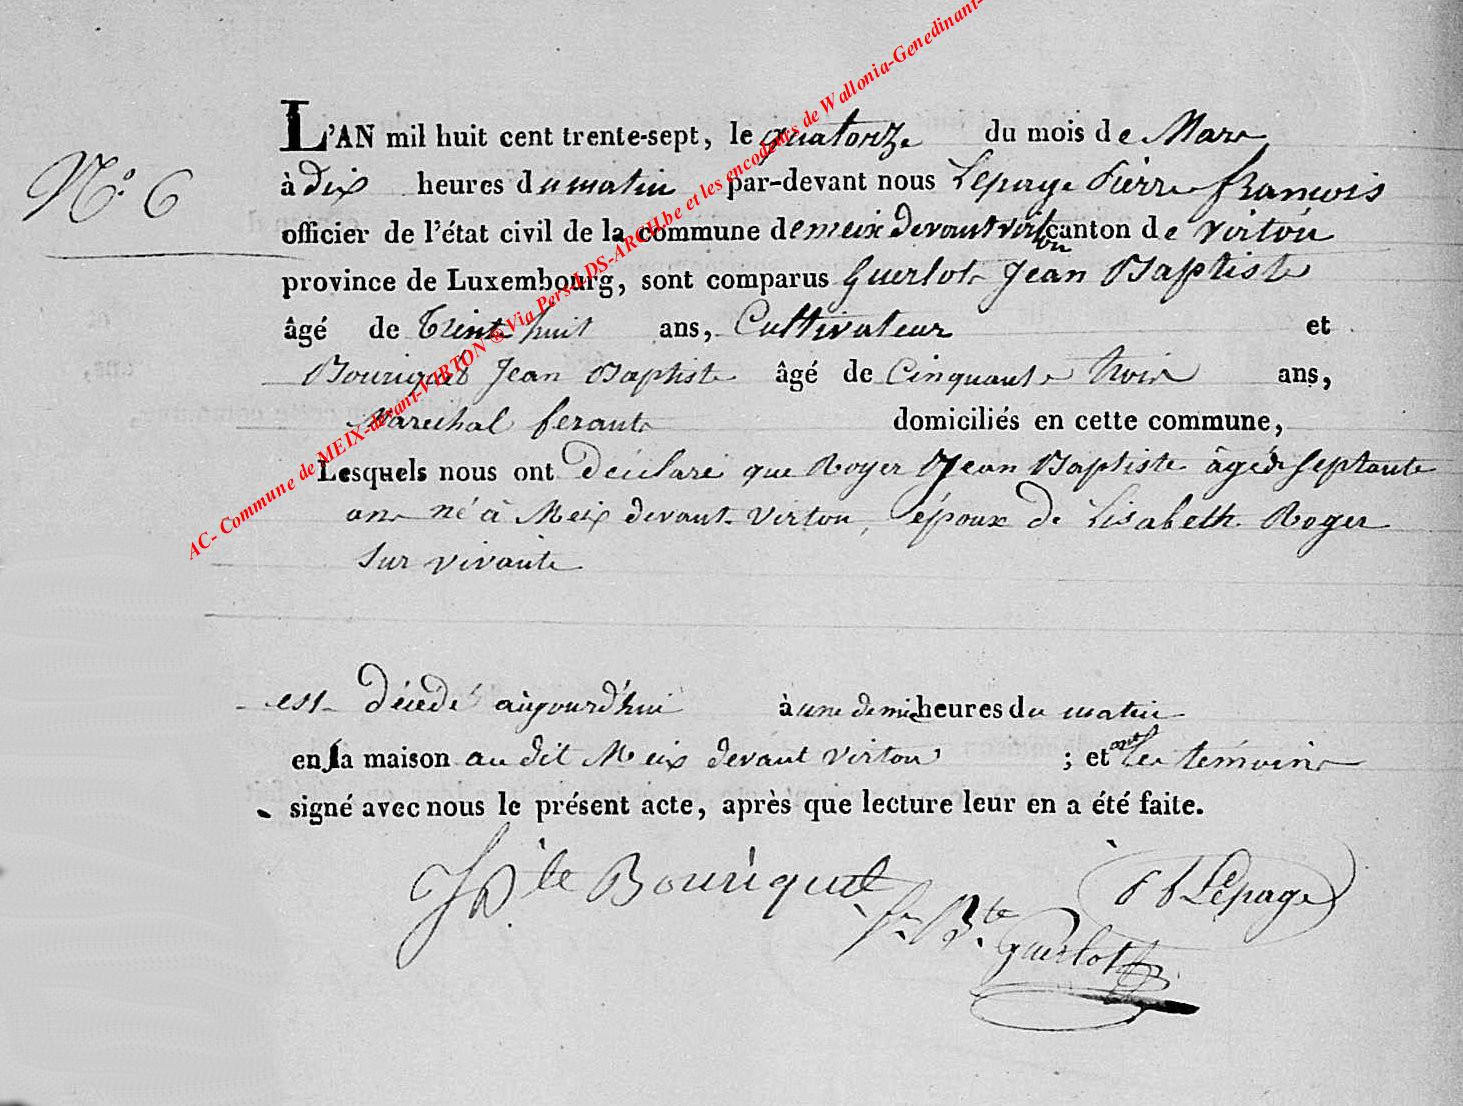 AC- Commune de MEIX-devant-VIRTON ® Via Pers-LDS-ARCH.be et les encodeurs de Wallonia-Genedinant-
L'AN mil huit cent trente-sept, le quatorze du mois de Mars
N.° 6
à dix heures du matin par-devant nous Lepage Pierre francois
officier de l'état civil de la commune de meix devant virton canton de virton
province de Luxembourg, sont comparus Guerlot Jean Baptiste
âgé de trente huit ans, Cultivateur et
Bouriquet Jean Baptiste âgé de Cinquante trois ans,
Marechal ferant domiciliés en cette commune,
Lesquels nous ont déclaré que Royer Jean Baptiste âgé de septante
ans né à Meix devant virton, époux de Lisabeth Roger
sur vivante
est décédé aujourd'hui à une demie heures du matin
en sa maison au dit Meix devant virton ; et ont les témoins
signé avec nous le présent acte, après que lecture leur en a été faite.
J B te Bouriquet
P f Lepage
Jn Bte
guerlot